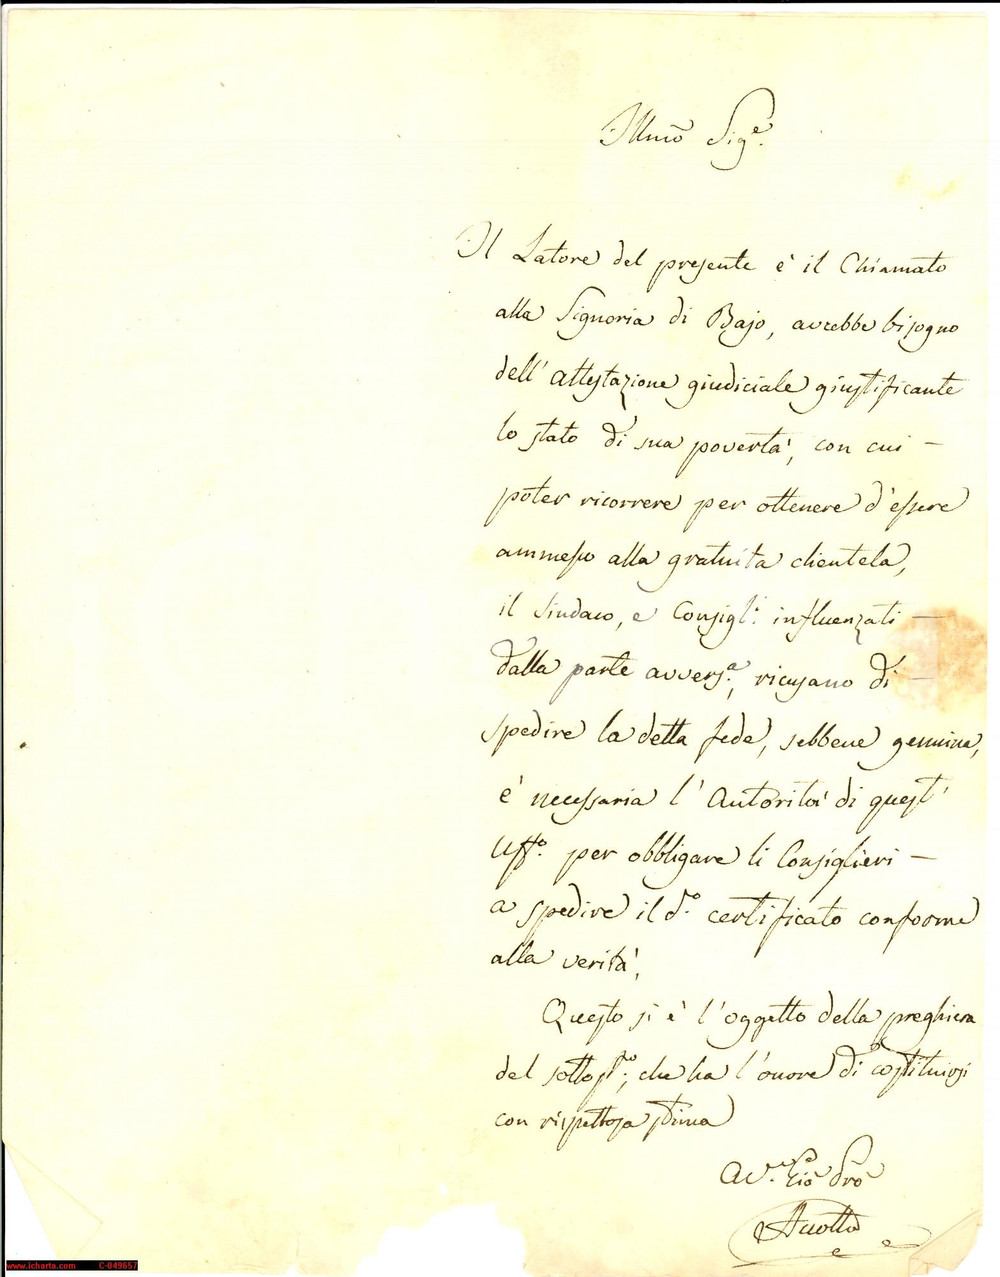 Illmo Sig.e
Il Latore del presente è il Chiamato
alla Signoria di Bajo, avrebbe bisogno
dell'attestazione giudiciale giustificante
lo stato di sua povertà, con cui –
poter ricorrere per ottenere d'essere
ammesso alla gratuita clientela,
il Sindaco, e Consigl.i influenzati –
dalla parte avvers.a, ricusano di –
spedire la detta fede, sebbene genuina,
è necessaria l'Autorità di quest'
Uff.o per obbligare li Consiglieri –
a spedire il d.o certificato conforme
alla verità,
Questo si è l'oggetto della preghiera
del sottos.to, che ha l'onore di costituirsi
con rispettosa stima
Gio
www.icharta.com C-049657